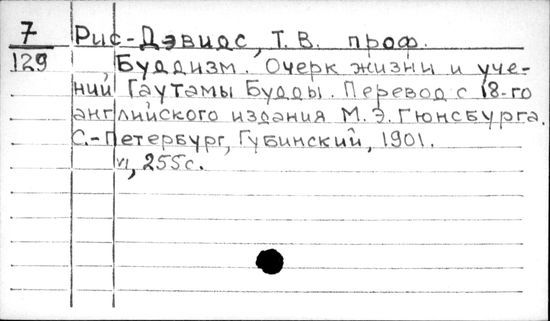 7 Рис-Дэвидс, Т. В. проф.
129 Буддизм. Очерк жизни и уче-
ний Гаутамы Будды. Перевод с 18-го
английского издания М. Э. Гюнсбурга.
С.-Петербург, Губинский, 1901.
VI, 255с.